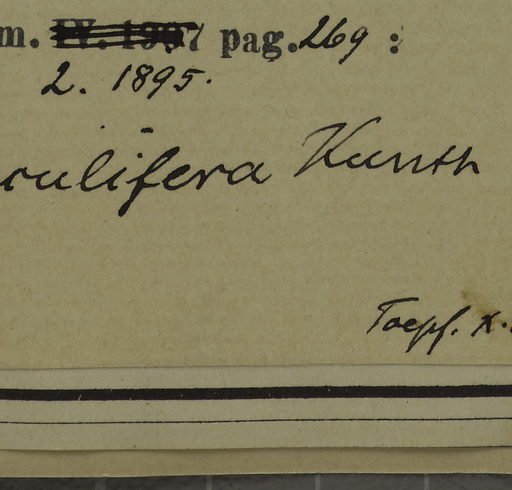 m. IV. 1907 pag. 269 :
2. 1895.
culifera Kunth
Toepf. X.